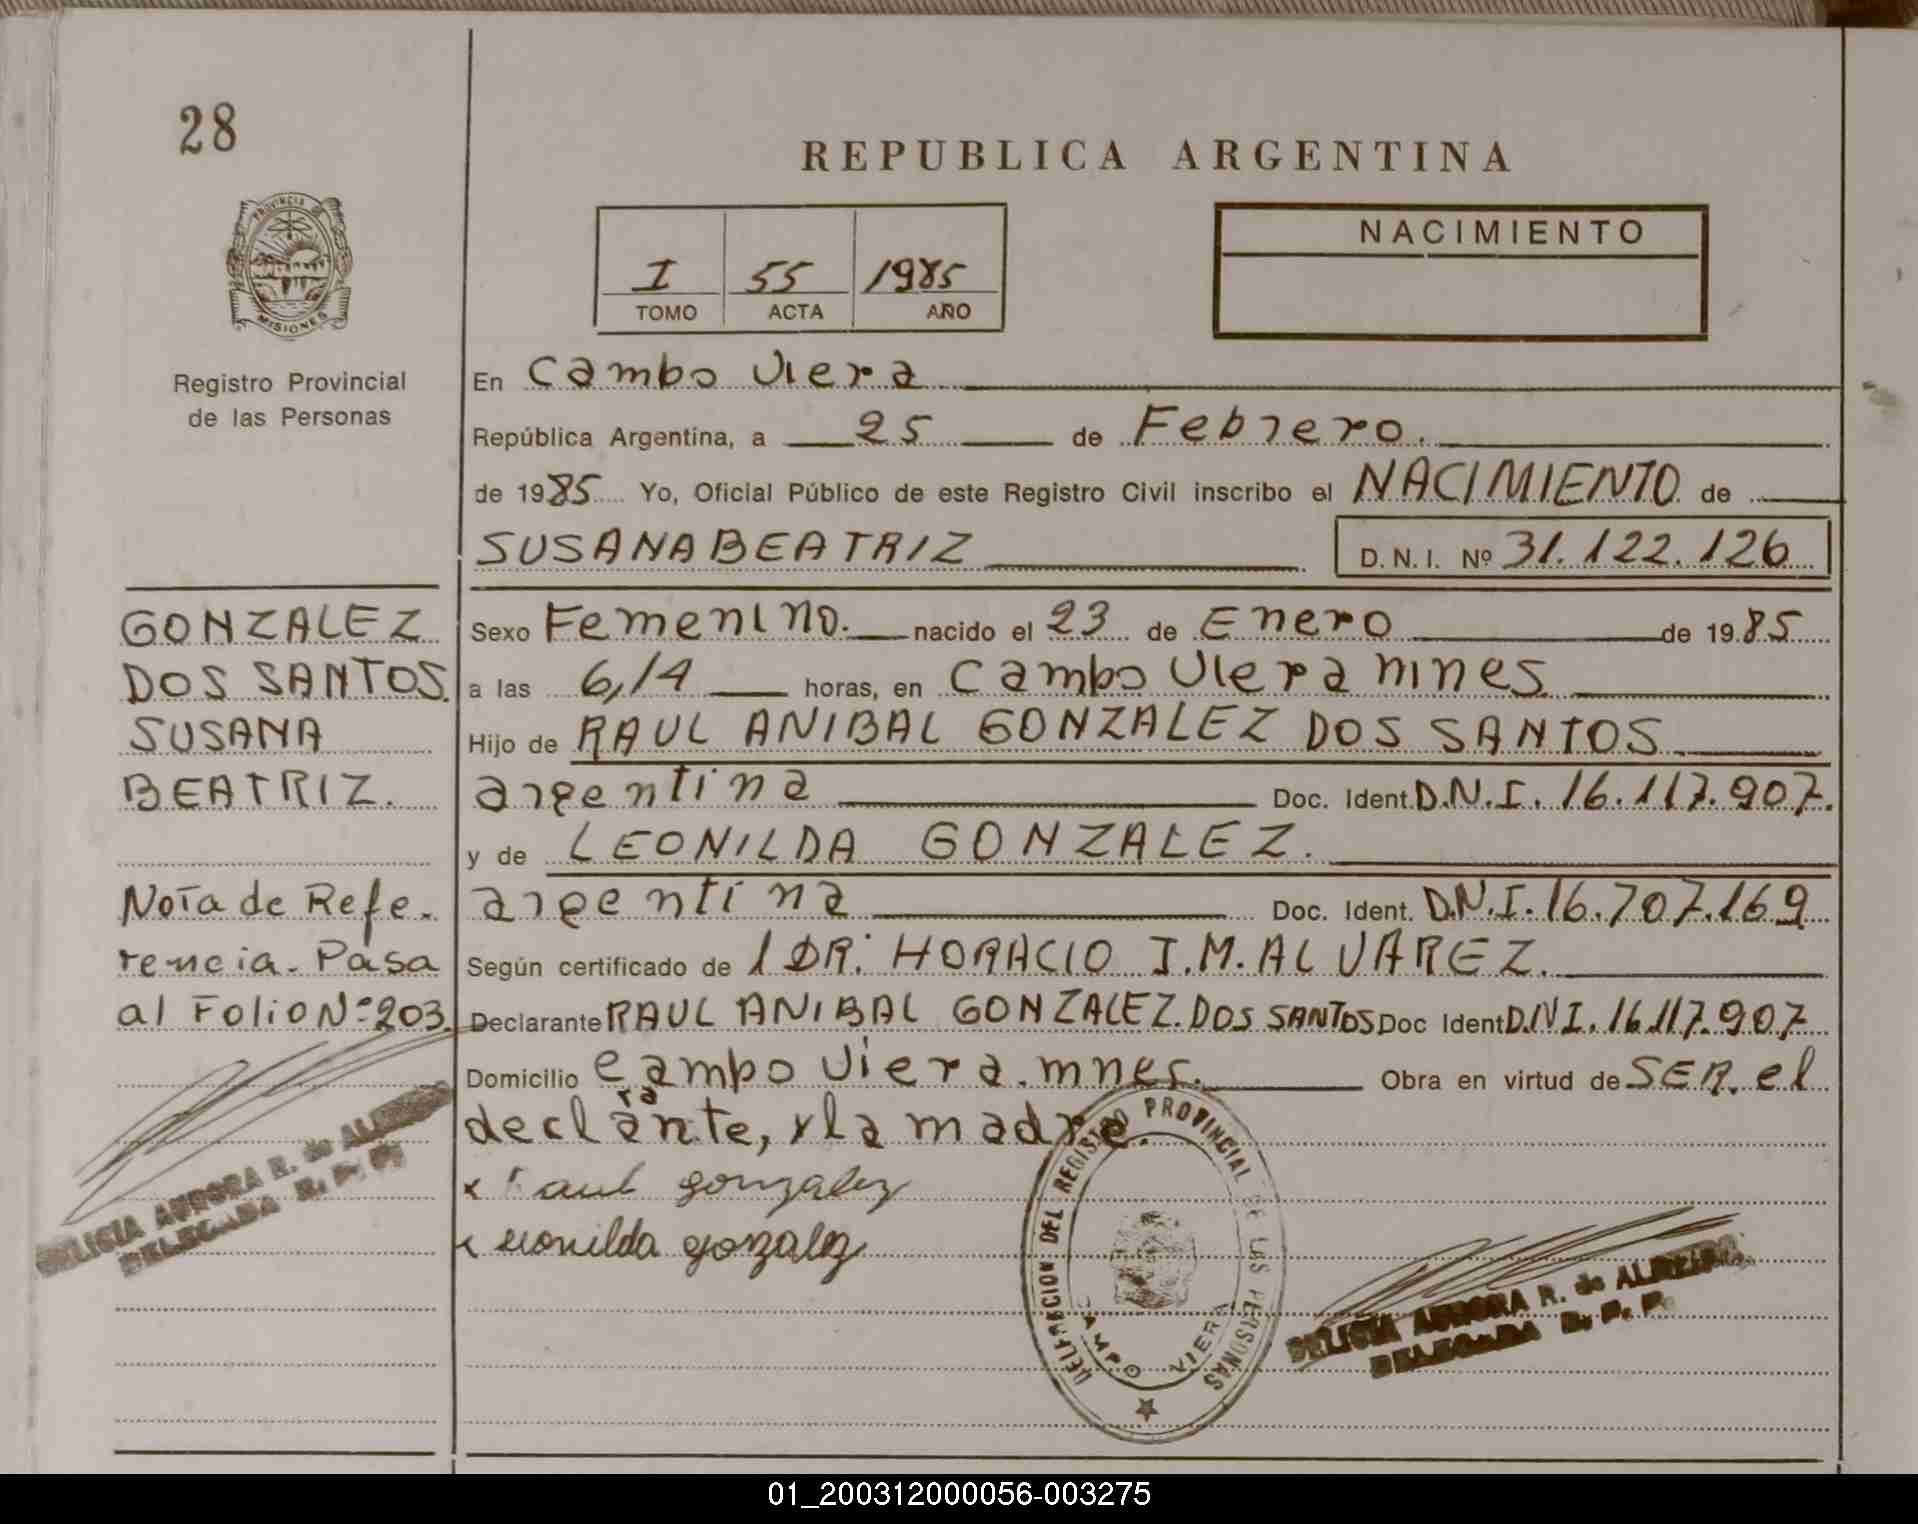 28
REPUBLICA ARGENTINA
PROVINCIA DE
MISIONES
Registro Provincial
de las Personas
I 55 1985
TOMO ACTA AÑO
NACIMIENTO
En Cambo Viera
República Argentina, a 25 de Febrero.
de 1985 Yo, Oficial Público de este Registro Civil inscribo el NACIMIENTO de
SUSANA BEATRIZ D.N.I. Nº 31.122.126
Sexo Femenino. nacido el 23 de Enero de 1985
a las 6,14 horas, en Cambo Viera mnes
Hijo de RAUL ANIBAL GONZALEZ DOS SANTOS
argentina Doc. Ident. D.N.I. 16.117.907.
y de LEONILDA GONZALEZ.
argentina Doc. Ident. D.N.I. 16.707.169
Según certificado de 1 DR: HORACIO J.M. ALVAREZ.
Declarante RAUL ANIBAL GONZALEZ. DOS SANTOS Doc Ident D.N.I. 16.117.907
Domicilio Campo Viera. mnes. Obra en virtud de SER. el
declarante, y la madre.
x Raul gonzalez
x Leonilda gonzalez
GONZALEZ
DOS SANTOS.
SUSANA
BEATRIZ.
Nota de Refe-
rencia. Pasa
al Folio Nº 203.
DELICIA AURORA R. de ALMEIDA
DELEGADA R. P. P.
DELEGACION DEL REGISTRO PROVINCIAL DE LAS PERSONAS
CAMPO VIERA
DELICIA AURORA R. de ALMEIDA
DELEGADA R. P. P.
01_200312000056-003275